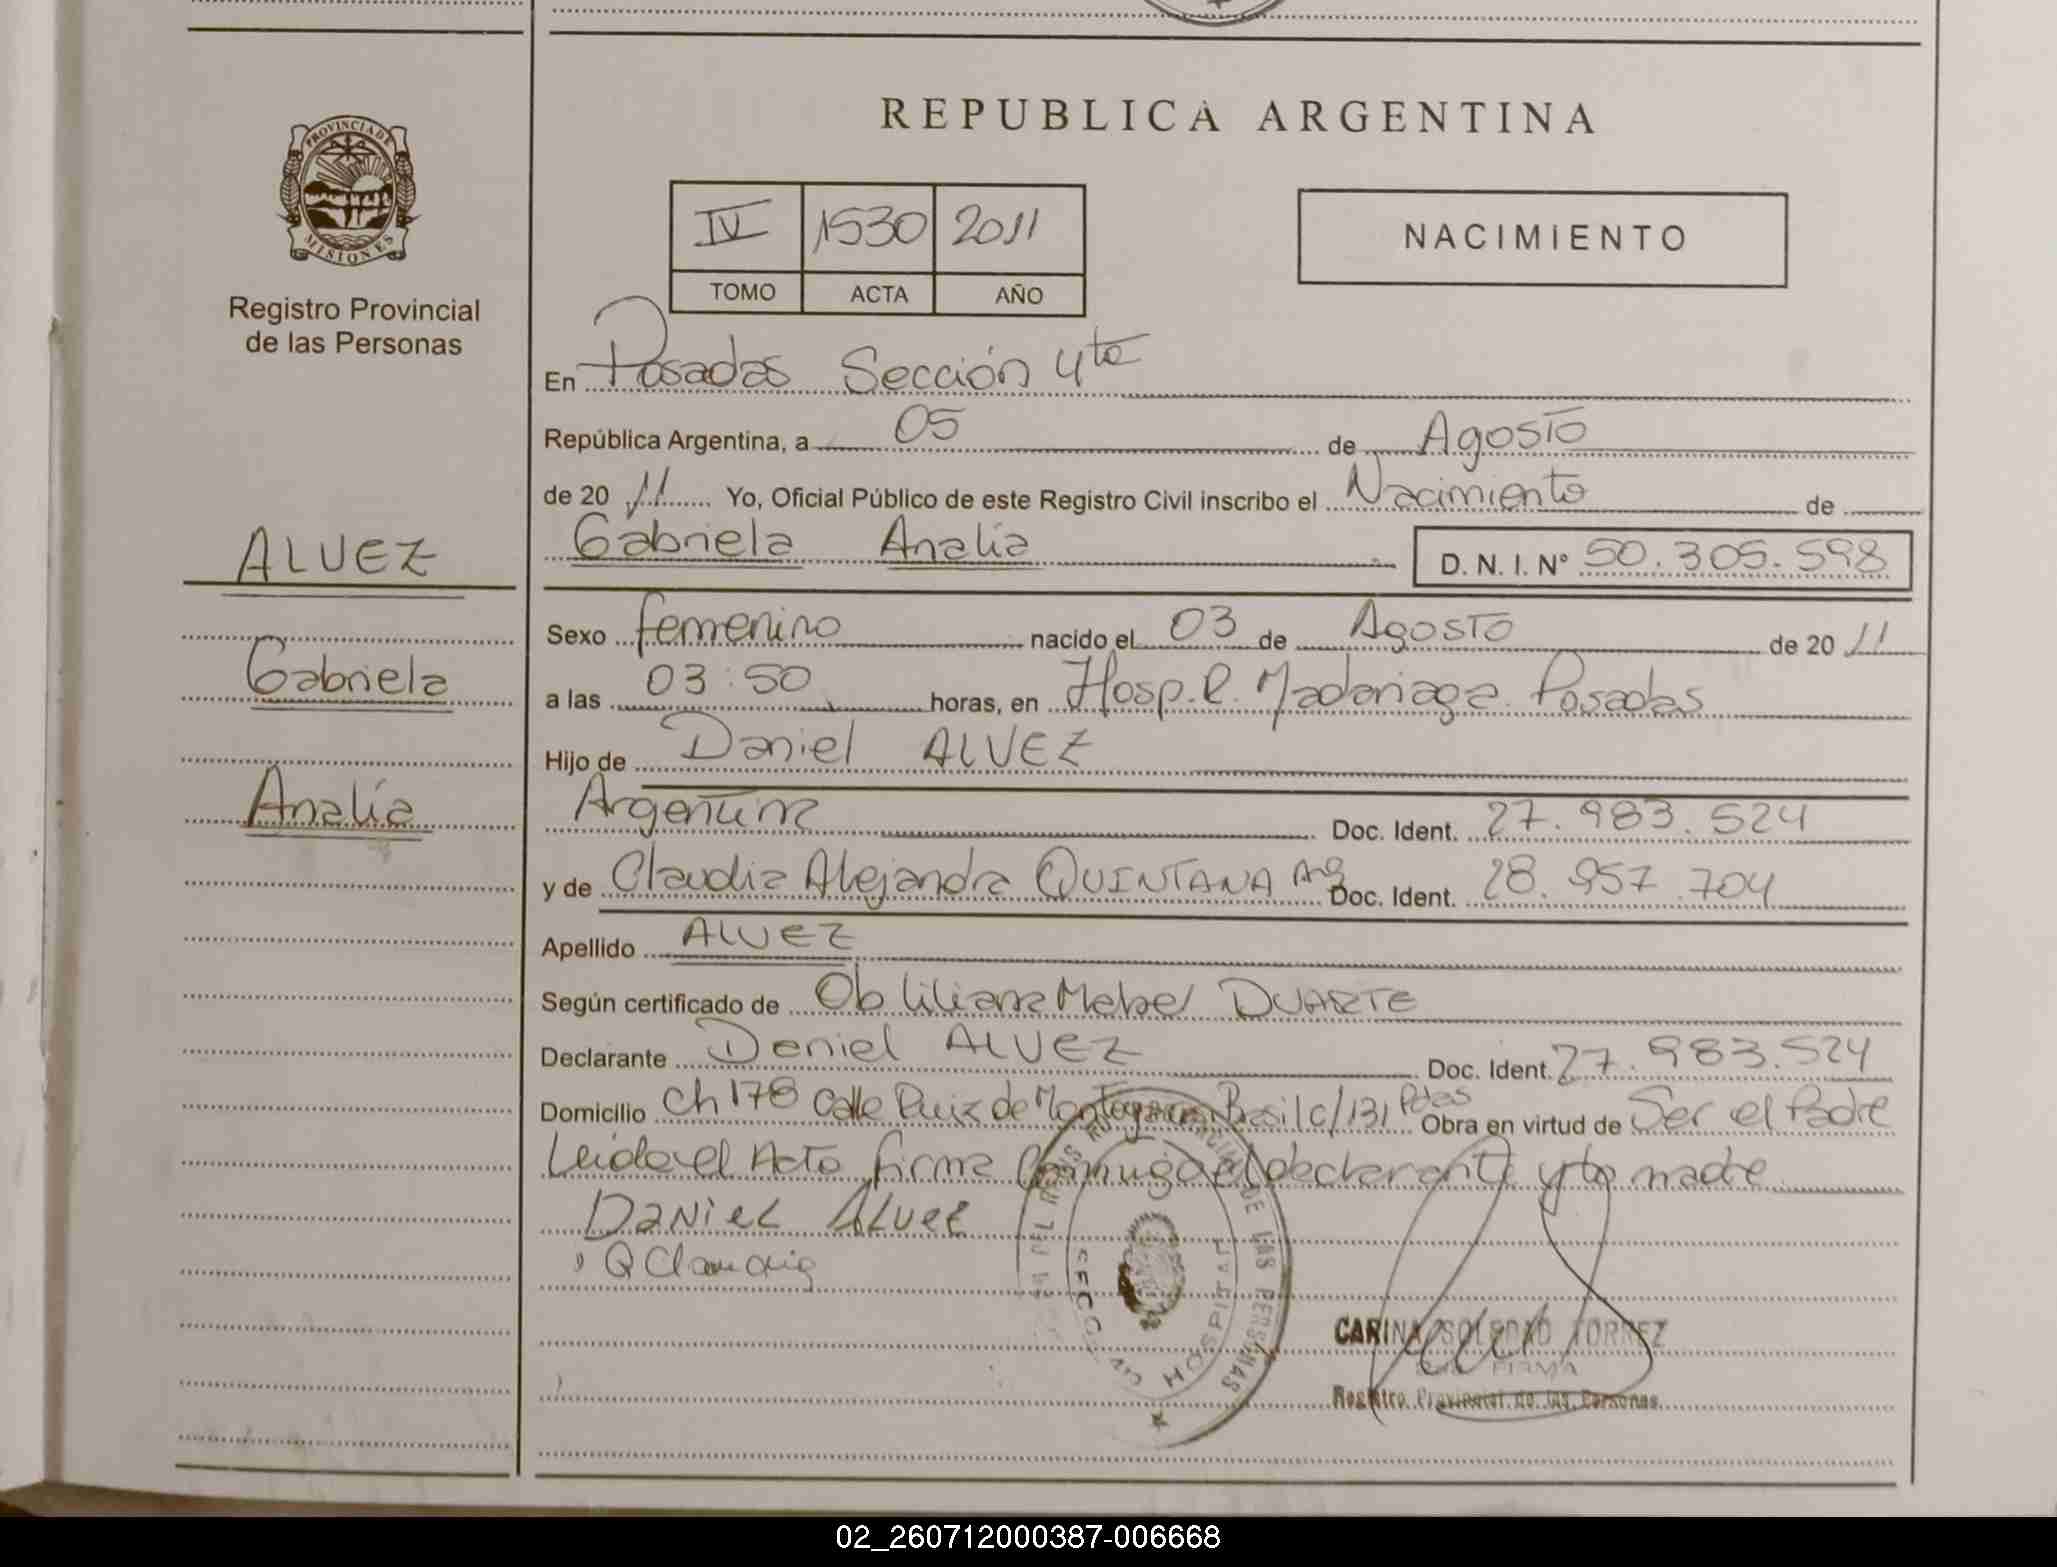 REPUBLICA ARGENTINA
PROVINCIA DE
MISIONES
Registro Provincial
de las Personas
IV 1530 2011
TOMO ACTA AÑO
NACIMIENTO
En Posadas Sección 4ta
República Argentina, a 05 de Agosto
de 20 11 Yo, Oficial Público de este Registro Civil inscribo el Nacimiento de
ALVEZ
Gabriela Analia
D. N. I. Nº 50.305.598
Sexo femenino nacido el 03 de Agosto de 20 11
Gabriela
a las 03:50 horas, en Hosp. R. Madariaga Posadas
Hijo de Daniel ALVEZ
Analia
Argentina Doc. Ident. 27.983.524
y de Claudia Alejandra QUINTANA Arg Doc. Ident. 28.957.704
Apellido ALVEZ
Según certificado de Ob Liliana Mabel DUARTE
Declarante Daniel ALVEZ Doc. Ident. 27.983.524
Domicilio Ch 178 Calle Ruiz de Montoya Brasil c/131 Pdas Obra en virtud de Ser el Padre
Leida el Acta firma Conmigo el declarante y la madre
DaNiEL ALvez
Q Claudia
HOSPITAL
DE LAS PERSONAS
CARINA SOLEDAD TORREZ
FIRMA
Registro Provincial de las Personas
02_260712000387-006668